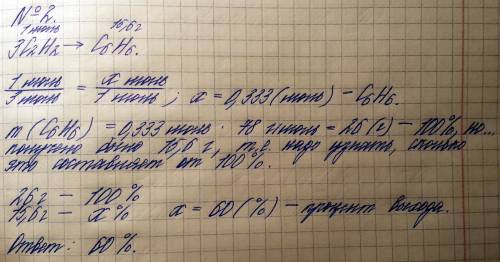 №2.
1 моль 15,6 г
3C₂H₂ → C₆H₆.
1 моль / 3 моль = x моль / 1 моль ; x = 0,333 (моль) – C₆H₆.
m (C₆H₆) = 0,333 моль · 78 г/моль = 26 (г) – 100%, но...
получено было 15,6 г, т.е. надо узнать, сколько
это составляет от 100%.
26 г – 100%
15,6 г – x% x = 60 (%) – процент выхода.
Ответ: 60%.